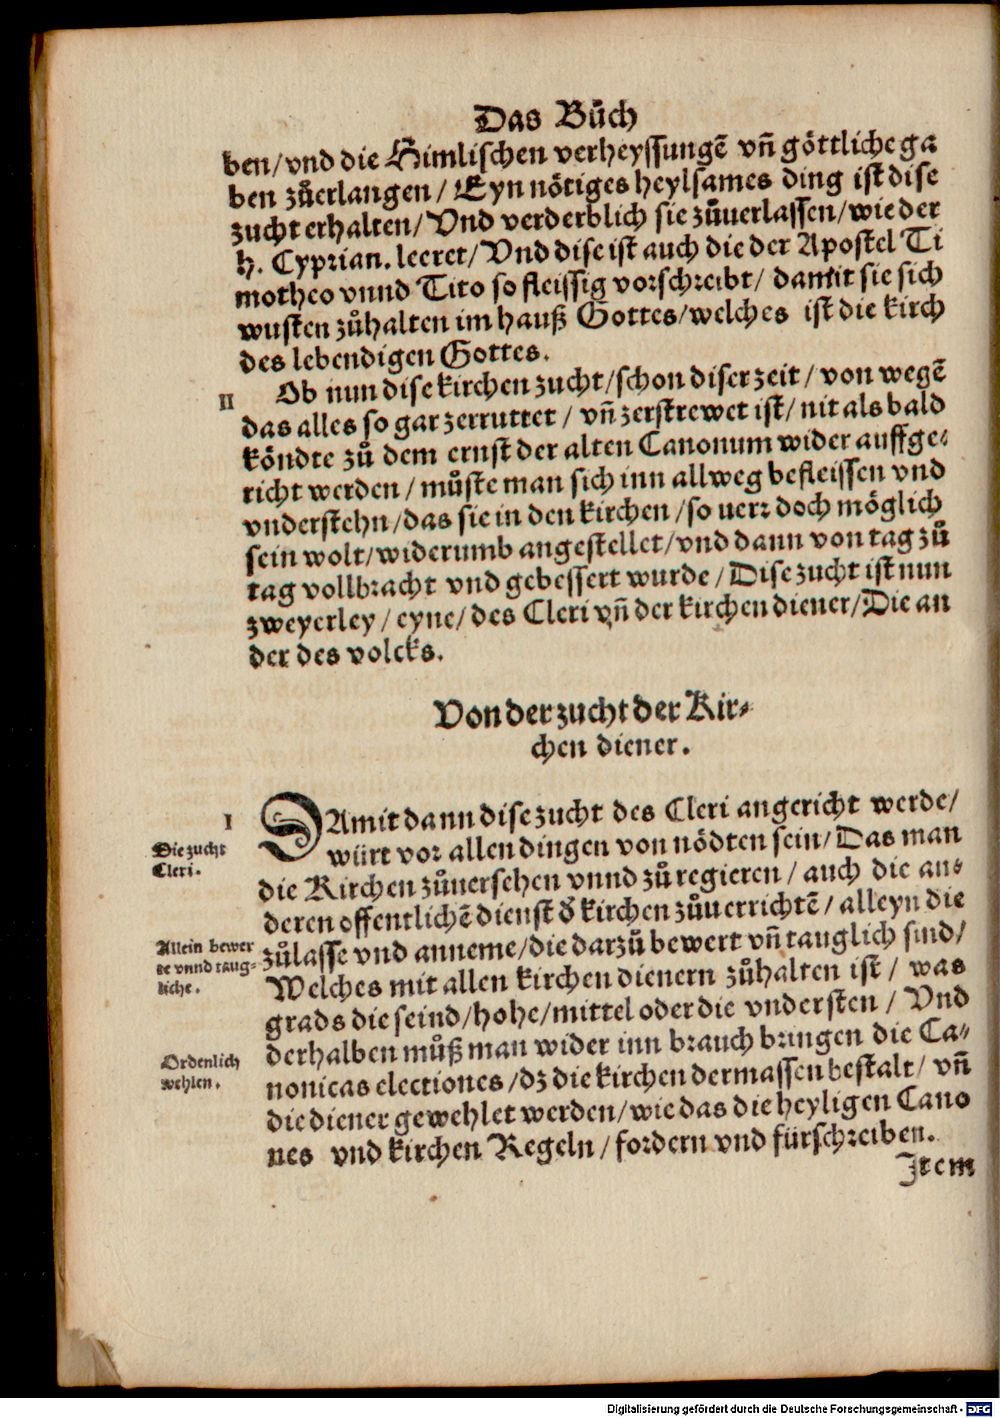 Das Bůch
ben/vnd die Himlischen verheyssungẽ vñ göttliche ga
ben zůerlangen/ Eyn nötiges heylsames ding ist dise
zucht erhalten/ Vnd verderblich sie zůuerlassen/wie der
h. Cyprian. leeret/ Vnd dise ist auch die der Apostel Ti
motheo vnnd Tito so fleissig vorschreibt/ damit sie sich
wusten zůhalten im hauß Gottes/welches ist die kirch
des lebendigen Gottes.
II Ob nun dise kirchen zucht/schon diser zeit/ von wegẽ
das alles so gar zerruttet/ vñ zerstrewet ist/ nit als bald
köndte zů dem ernst der alten Canonum wider auffge⸗
richt werden/ můste man sich inn allweg befleissen vnd
vnderstehn/das sie in den kirchen/so uerr doch möglich
sein wolt/widerumb angestellet/vnd dann von tag zů
tag vollbracht vnd gebessert wurde/ Dise zucht ist nun
zweyerley/ eyne/ des Cleri vñ der kirchen diener/Die an
der des volcks.
Von der zucht der Kir⸗
chen diener.
I DAmit dann dise zucht des Cleri angericht werde/
Die zucht
Cleri.
würt vor allen dingen von nödten sein/ Das man
die Kirchen zůuersehen vnnd zů regieren/ auch die an⸗
deren offentlichẽ dienst d̓ kirchen zůuerrichtẽ/ alleyn die
Allein bewer
te vnnd taug⸗
liche.
zůlasse vnd anneme/die darzů bewert vñ tauglich sind/
Welches mit allen kirchen dienern zůhalten ist/ was
grads die seind/hohe/mittel oder die vndersten/ Vnd
Ordenlich
wehlen.
derhalben můß man wider inn brauch bringen die Ca⸗
nonicas electiones/dz die kirchen dermassen bestalt/ vñ
die diener gewehlet werden/wie das die heyligen Cano
nes vnd kirchen Regeln/ fordern vnd fürschreiben.
Item
Digitalisierung gefördert durch die Deutsche Forschungsgemeinschaft - DFG